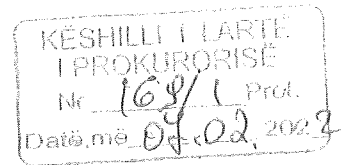 KËSHILLI I LARTË
I PROKURORISË
Nr. 168/1 Prot.
Datë, më 04.02.2022